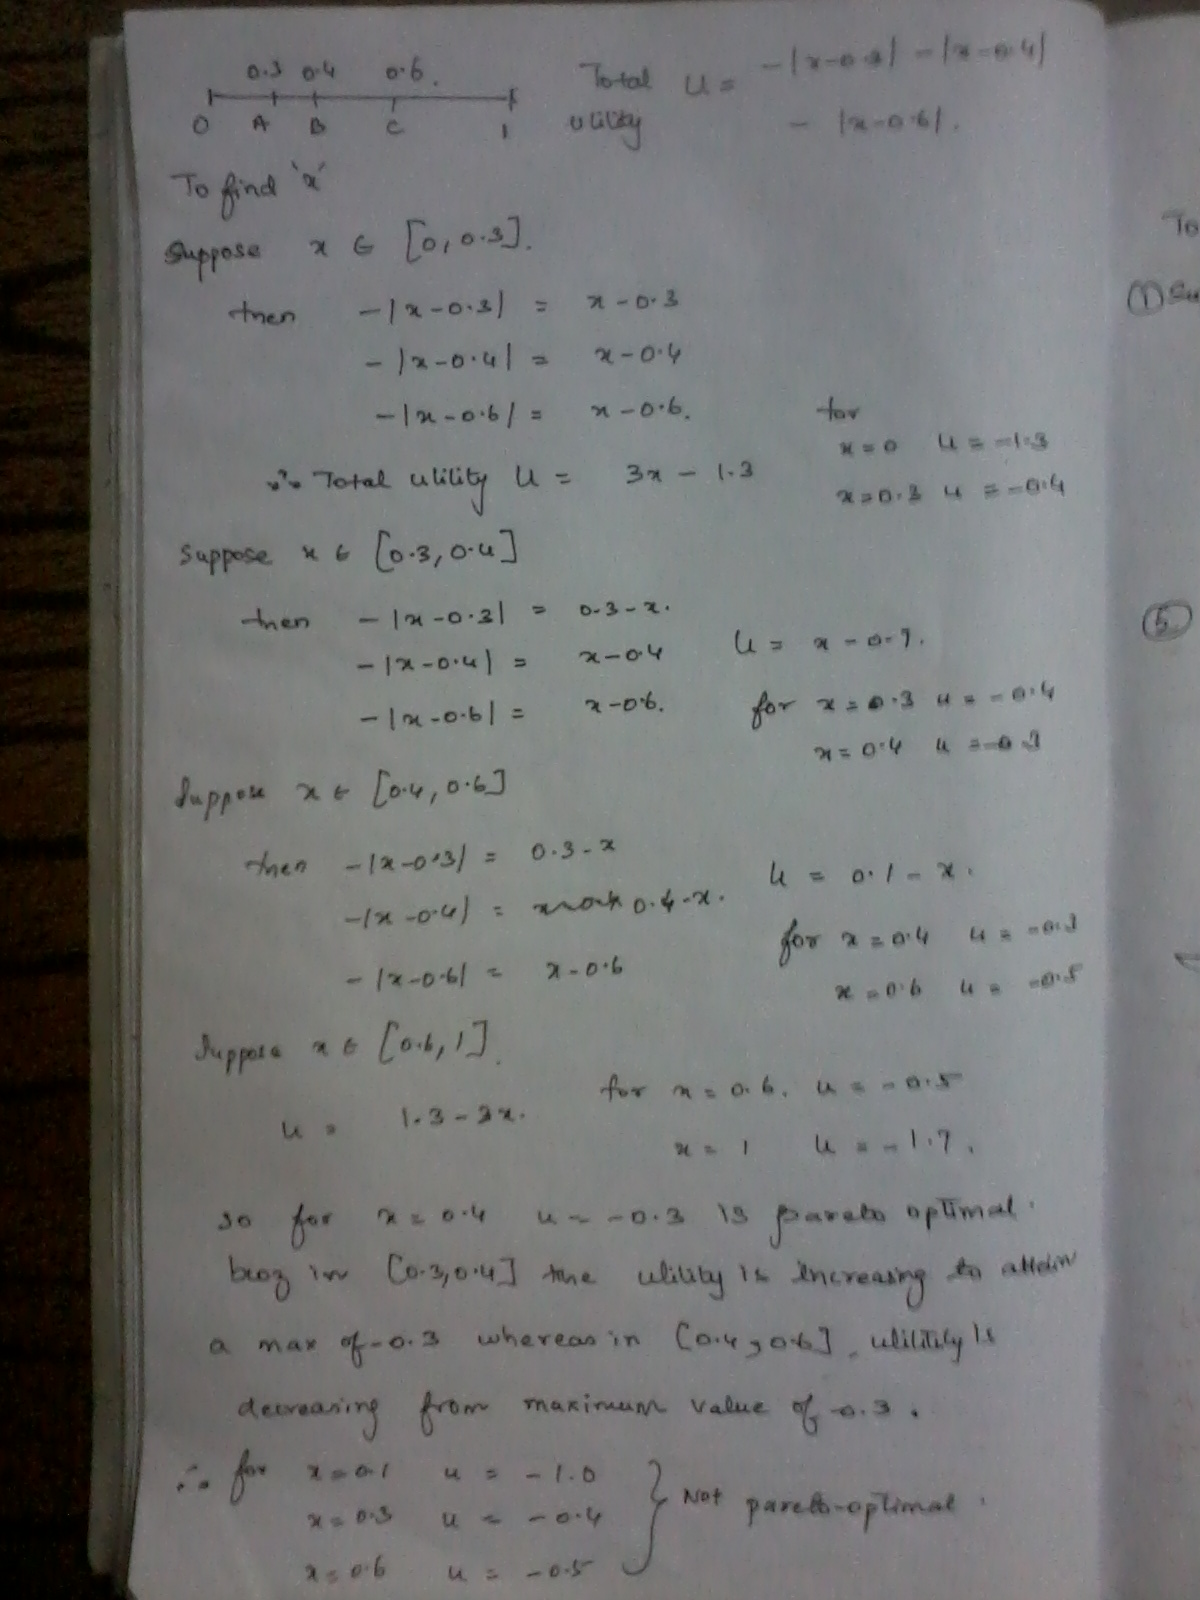 0.3 0.4 0.6.
0 A B C 1
Total U = -|x-0.3| - |x-0.4|
utility - |x-0.6|.
To find 'x'
Suppose x ∈ [0, 0.3].
then -|x-0.3| = x-0.3
-|x-0.4| = x-0.4
-|x-0.6| = x-0.6.
for
x=0 u = -1.3
∴ Total utility U = 3x - 1.3
x=0.3 u = -0.4
Suppose x ∈ [0.3, 0.4]
then -|x-0.3| = 0.3-x.
-|x-0.4| = x-0.4
U = x-0.7.
-|x-0.6| = x-0.6.
for x=0.3 u = -0.4
x=0.4 u = -0.3
Suppose x ∈ [0.4, 0.6]
then -|x-0.3| = 0.3-x
U = 0.1-x.
-|x-0.4| = 0.4-x.
for x=0.4 u = -0.3
-|x-0.6| = x-0.6
x=0.6 u = -0.5
Suppose x ∈ [0.6, 1].
for x=0.6. u = -0.5
u = 1.3-3x.
x=1 u = -1.7.
so for x=0.4 u = -0.3 is pareto optimal.
bcoz in [0.3,0.4] the utility is increasing to attain
a max of -0.3 whereas in [0.4, 0.6], utility is
decreasing from maximum value of -0.3.
∴ for x=0.1 u = -1.0
x=0.3 u = -0.4
Not pareto-optimal.
x=0.6 u = -0.5
To
① Su
⑤